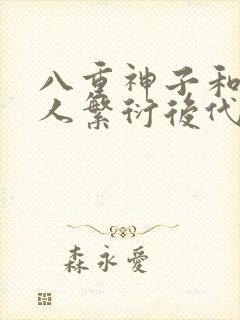 八重神子和
人繁衍後代
森永愛